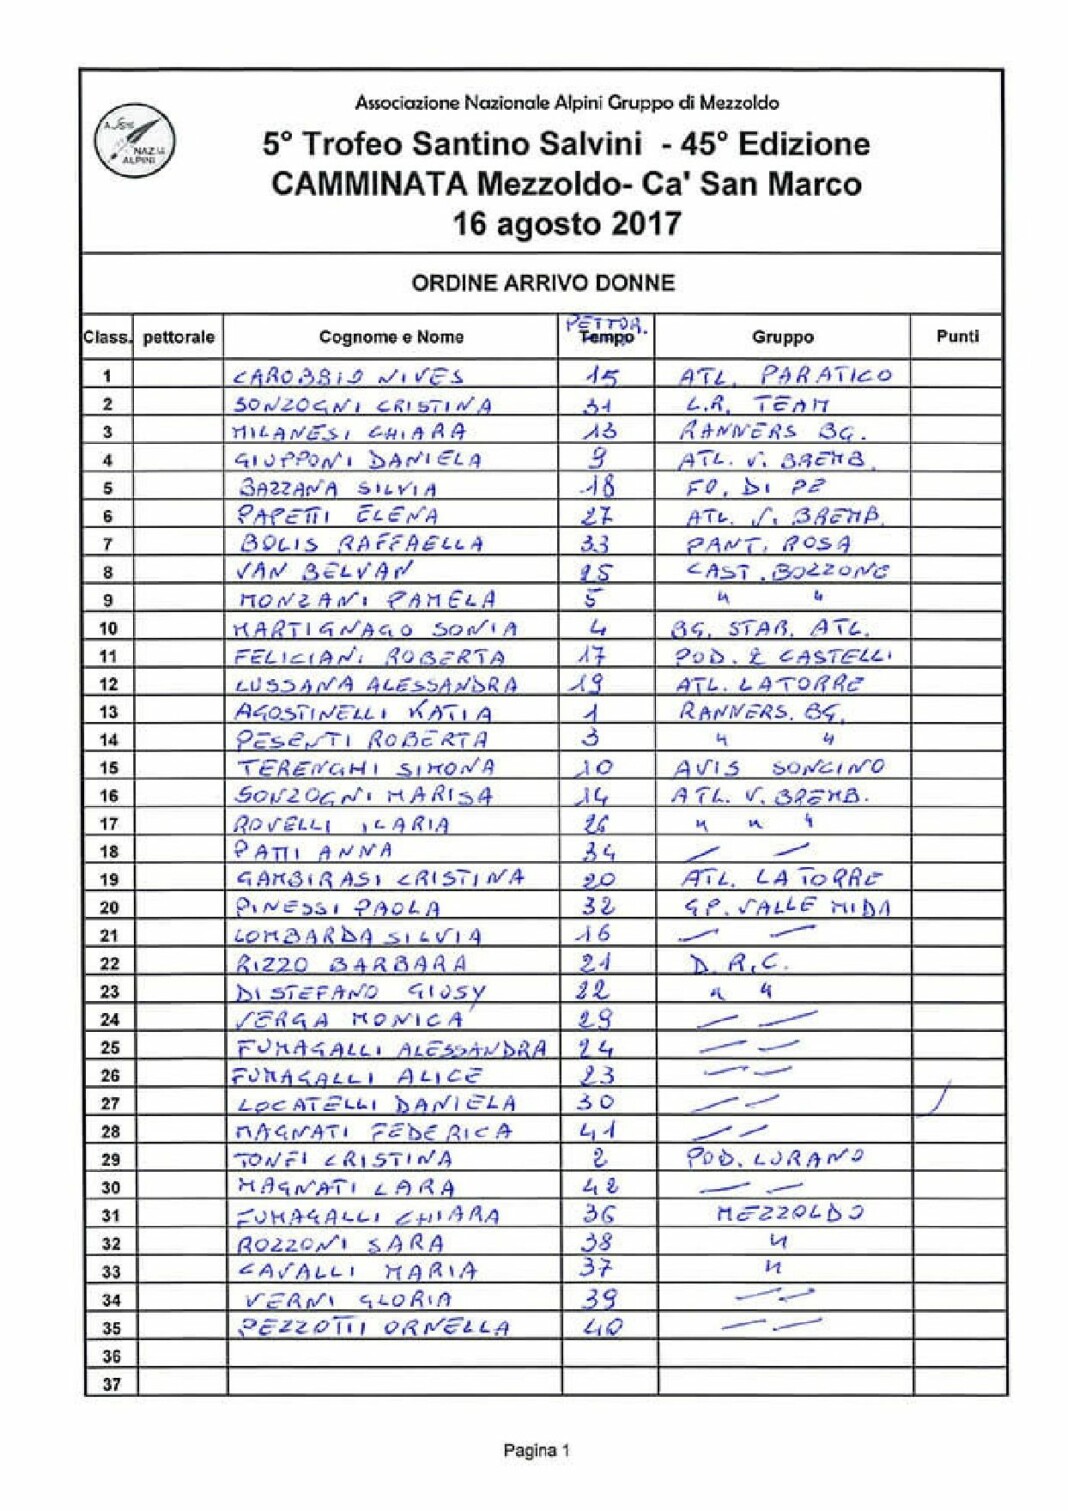 Associazione Nazionale Alpini Gruppo di Mezzoldo
NAZ.
ALPINI
5° Trofeo Santino Salvini - 45° Edizione
CAMMINATA Mezzoldo- Ca' San Marco
16 agosto 2017
ORDINE ARRIVO DONNE
PETTOR.
Class. pettorale Cognome e Nome Tempo Gruppo Punti
1 CAROBBIO NIVES 15 ATL. PARATICO
2 SONZOGNI CRISTINA 31 L.R. TEAM
3 MILANESI CHIARA 13 RANNERS BG.
4 GIUPPONI DANIELA 9 ATL. V. BREMB.
5 BAZZANA SILVIA 18 FO. DI PZ
6 PAPETTI ELENA 27 ATL. V. BREMB.
7 BOLIS RAFFAELLA 33 PANT. ROSA
8 VAN BELVAN 25 CAST. BOZZONE
9 MONZANI PAMELA 5 " "
10 MARTIGNAGO SONIA 4 BG. STAR. ATL.
11 FELICIANI ROBERTA 17 POD. 2 CASTELLI
12 LUSSANA ALESSANDRA 19 ATL. LA TORRE
13 AGOSTINELLI KATIA 1 RANNERS. BG.
14 PESENTI ROBERTA 3 " "
15 TERENGHI SIMONA 10 AVIS SONCINO
16 SONZOGNI MARISA 14 ATL. V. BREMB.
17 ROVELLI ILARIA 26 " " "
18 PATTI ANNA 34 — —
19 GAMBIRASI CRISTINA 20 ATL. LA TORRE
20 PINESSI PAOLA 32 GP. VALLE MIDA
21 LOMBARDA SILVIA 16 — —
22 RIZZO BARBARA 21 D.R.C.
23 DI STEFANO GIUSY 22 " "
24 VERGA MONICA 29 — —
25 FUMAGALLI ALESSANDRA 24 — —
26 FUMAGALLI ALICE 23 — —
27 LOCATELLI DANIELA 30 — —
28 MAGNATI FEDERICA 41 — —
29 TONFI CRISTINA 2 POD. LURANO
30 MAGNATI LARA 42 — —
31 FUMAGALLI CHIARA 36 MEZZOLDO
32 ROZZONI SARA 38 "
33 CAVALLI MARIA 37 "
34 VERNI GLORIA 39 — —
35 PEZZOTTI ORNELLA 40 — —
36
37
Pagina 1